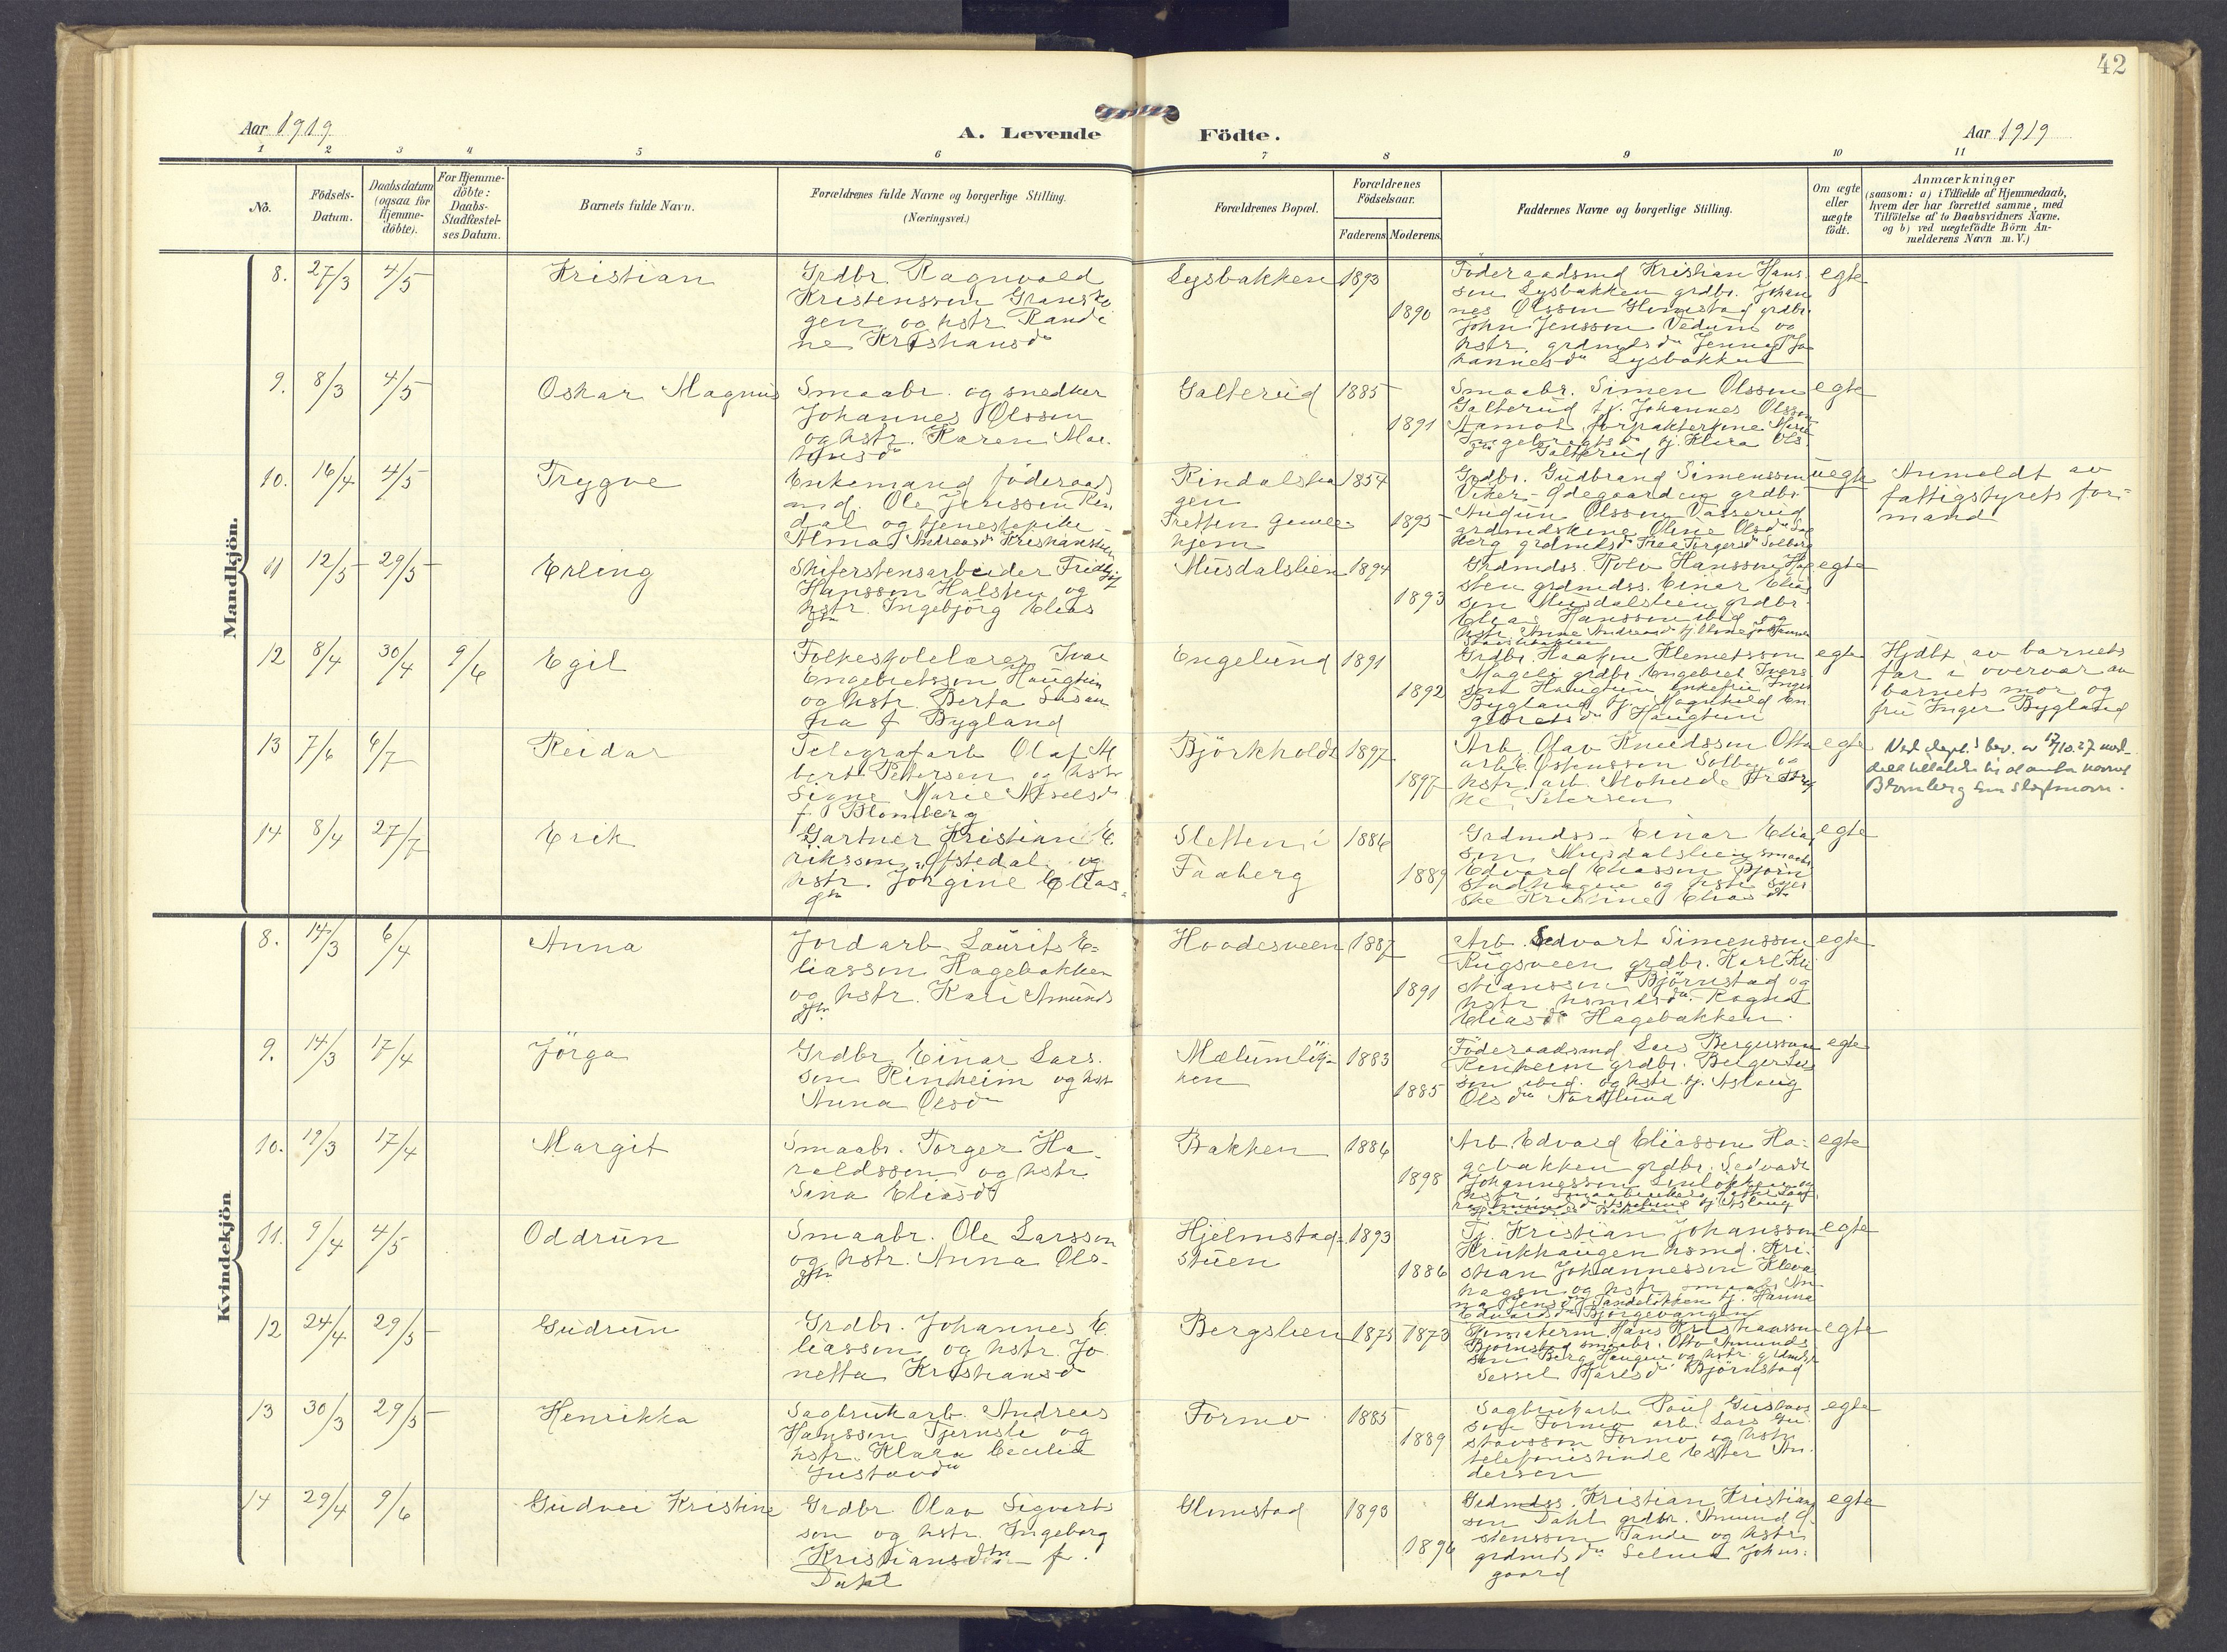 42
Aar 1919
A. Levende Födte.
Aar 1919
1 2 3 4 5 6 7 8 9 10 11
No.
Födsels-Datum.
Daabsdatum (ogsaa for Hjemme-döbte).
For Hjemme-döbte: Daabs-Stadfæstel-ses Datum.
Barnets fulde Navn.
Forældrenes fulde Navne og borgerlige Stilling.
(Næringsvei.)
Forældrenes Bopæl.
Forældrenes Födselsaar.
Faderens. Moderens.
Faddernes Navne og borgerlige Stilling.
Om ægte eller uægte födt.
Anmærkninger
(saasom: a) i Tilfælde af Hjemmedaab,
hvem der har forrettet samme, med
Tilföielse af to Daabsvidners Navne.
og b) ved uægtefödte Börn An-
melderens Navn m.V.)
Mandkjön.
8. 27/3 4/5 Kristian
Grdbr. Ragnvald
Kristensson Granske
gen og hstr Randi
ne Kristiansdr
Lysbakken 1893
1890
Föderaadsmd Kristian Hans
son Lysbakken grdbr. Johan
nes Olsson Glomstad grdbr.
John Jensson Vedum og
hstr. grdmdsdr Jenny Jo
hannesdr Lysbakken
egte
9. 8/3 4/5 Oskar Magnus
Smaabr. og snedker
Johannes Olsson
og hstr. Karen Mar
Galterud 1885
1891
Smaabr. Simen Olsson
Galterud tj. Johannes Olsson
Aamot forpakterkone Marie
Ingebregtsdr tj. Klara Ols
dr Galterud
egte
10. 16/4 4/5 Trygve
Enkemand föderaads
md. Ole Jensson Rin
dal og tjenestepike
Alma Andreasdr Kristiansen
Rindalsha
gen
Tretten Gamle
hjem
1854
1895
Grdbr. Gudbrand Simensson
Viker-Ödegaarden grdbr.
Audun Olsson Vasserud
grdmdskone Oline Olsdr Sol
berg grdmdsdr Thea Torgersdr Solberg
uegte
Anmeldt av
fattigstyrets for-
mand
11 12/5 29/5 Erling
Skiferstensarbeider Fridtjof
Hansson Halsten og
hstr. Ingebjörg Elias
dtr
Musdalslien 1894
1893
Grdmdss. Rolv Hansson Hal
sten grdmdss. Einar Elias
son Musdalslien grdbr.
Elias Hansson ibid og
hstr. Anne Andreasdr
egte
12 8/4 30/4 9/6 Egil
Folkeskolelærer Ivar
Engebretsson Haugtun
og hstr. Berta Susan
na f Bygland
Engelund 1891
1892
Grdbr. Haakon Klemetsson
Mageli grdbr. Engebret Ivers
son Haugtun enkefru Inger
Bygland tj. Magnhild En
gebretsdr Haugtun
egte
Hjdbt av barnets
far i overvær av
barnets mor og
fru Inger Bygland
13 7/6 6/7 Reidar
Telegrafarb Olaf Al
bert Pettersen og hstr
Signe Marie Akselsdr
f Blomberg
Björkholdt 1897
1897
Arb. Olav Knudsson Otta
arb. E. Ostensson Solby og
hstr. arb.
Petersen
egte
Ved dept.s bev. av 17/10.27 med-
delt tilladelse til at anta navnet
Blomberg som slegtsnavn.
14 8/4 27/7 Erik
Gartner Kristian E.
riksson Ofstedal og
hstr. Jörgine Elias-
dtr
Sletten i
Faaberg
1886
1889
Grdmdss. Einar Elias
son Musdalslien smaabr
Edvard Eliasson Björn
stadhagen og hstr syer
ske Kristine Eliasdtr
egte
Kvindekjön
8. 14/3 6/4 Anna
Jordarb. Laurits E-
liasson Hagebakken
og hstr. Kari Amunds
dtr
Hoodesveen 1887
1891
Arb. Sedvart Simensson
Rugsveen grdbr. Karl Kri
stiansson Björnstad og
hstr hsmdsdr. Ragna
Eliasdr Hagebakken.
egte
9. 14/3 17/4 Jörga
Grdbr. Einar Lars.
son Rinheim og hstr
Anna Olsdr
Mælumlök-
ken
1883
1885
Föderaadsmd Lars Bergersson
Rinheim grdbr. Berger Lars
son ibid. og hstr tj. Aslaug
Olsdr Nordlund
egte
10. 19/3 17/4 Margit
Smaabr. Torger Ha-
raldsson og hstr.
Sina Eliasdr
Bakken 1886
1898
Arb. Edvard Eliasson Ha-
gebakken grdbr. Sedvart
Johannesson Linlökken og
egte
11. 9/4 4/5 Oddrun
Smaabr. Ole Larsson
og hstr. Anna Ols-
dtr
Hjelmstad-
stuen
1893
1886
Tj. Kristian Johansson
Krukhaugen hsmd. Kri-
stian Johannesson Kleva
hagen og hstr. smaabr. An
na Jensdtr Sandelökken tj. Hanna
Edvardsdr Björgevangen
egte
12 24/4 29/5 Gudrun
Grdbr. Johannes E
liasson og hstr. Jo
netta Kristiansdr
Bergslien 1875 1873
Hans Kristiansson
Björnstad smaabr. Otto Amunds
son Berg Haugen og hstr grdmdsdr
Sessel Karlsdr Björnstad
egte
13 30/3 29/5 Henrikka
Sagbrukarb. Andreas
Hansson Tjernsli og
hstr. Klara Cecilie
Gustavdr
Formo 1885
1889
Sagbrukarb Paul Gustavs
son Formo arb. Lars Gu
stavsson Formo og hstr
telefonistinde Ester An
dersen
egte
14 29/4 9/6 Gudvei Kristine
Grdbr Olav Sigvarts
son og hstr. Ingeborg
Kristiansdtr f.
Dahl
Glomstad 1893
1896
Grdmdss. Kristian Kristians
son Dahl grdbr. Amund E-
stensson Tande og hstr
grdmdsdr Selma Johns-
gaard
egte